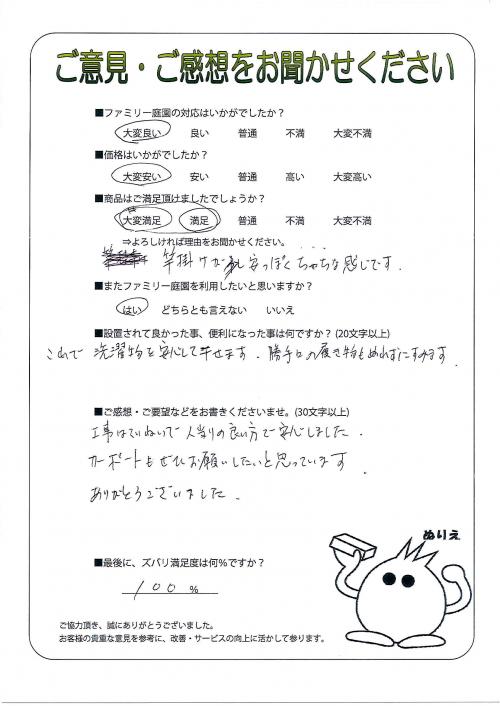 ご意見・ご感想をお聞かせください
■ファミリー庭園の対応はいかがでしたか?
大変良い 良い 普通 不満 大変不満
■価格はいかがでしたか?
大変安い 安い 普通 高い 大変高い
■商品はご満足頂けましたでしょうか?
大変満足 満足 普通 不満 大変不満
⇒よろしければ理由をお聞かせください。
竿掛けが少し安っぽくちゃちな感じです.
■またファミリー庭園を利用したいと思いますか?
はい どちらとも言えない いいえ
■設置されて良かった事、便利になった事は何ですか?(20文字以上)
これで 洗濯物を安心して干せます. 勝手口の履き物もぬれずにすみます.
■ご感想・ご要望などをお書きくださいませ。(30文字以上)
工事はていねいで人当りの良い方で安心しました.
カーポートもぜひお願いしたいと思っています
ありがとうございました.
ぬりえ
■最後に、ズバリ満足度は何%ですか?
100 %
ご協力頂き、誠にありがとうございました。
お客様の貴重な意見を参考に、改善・サービスの向上に活かして参ります。